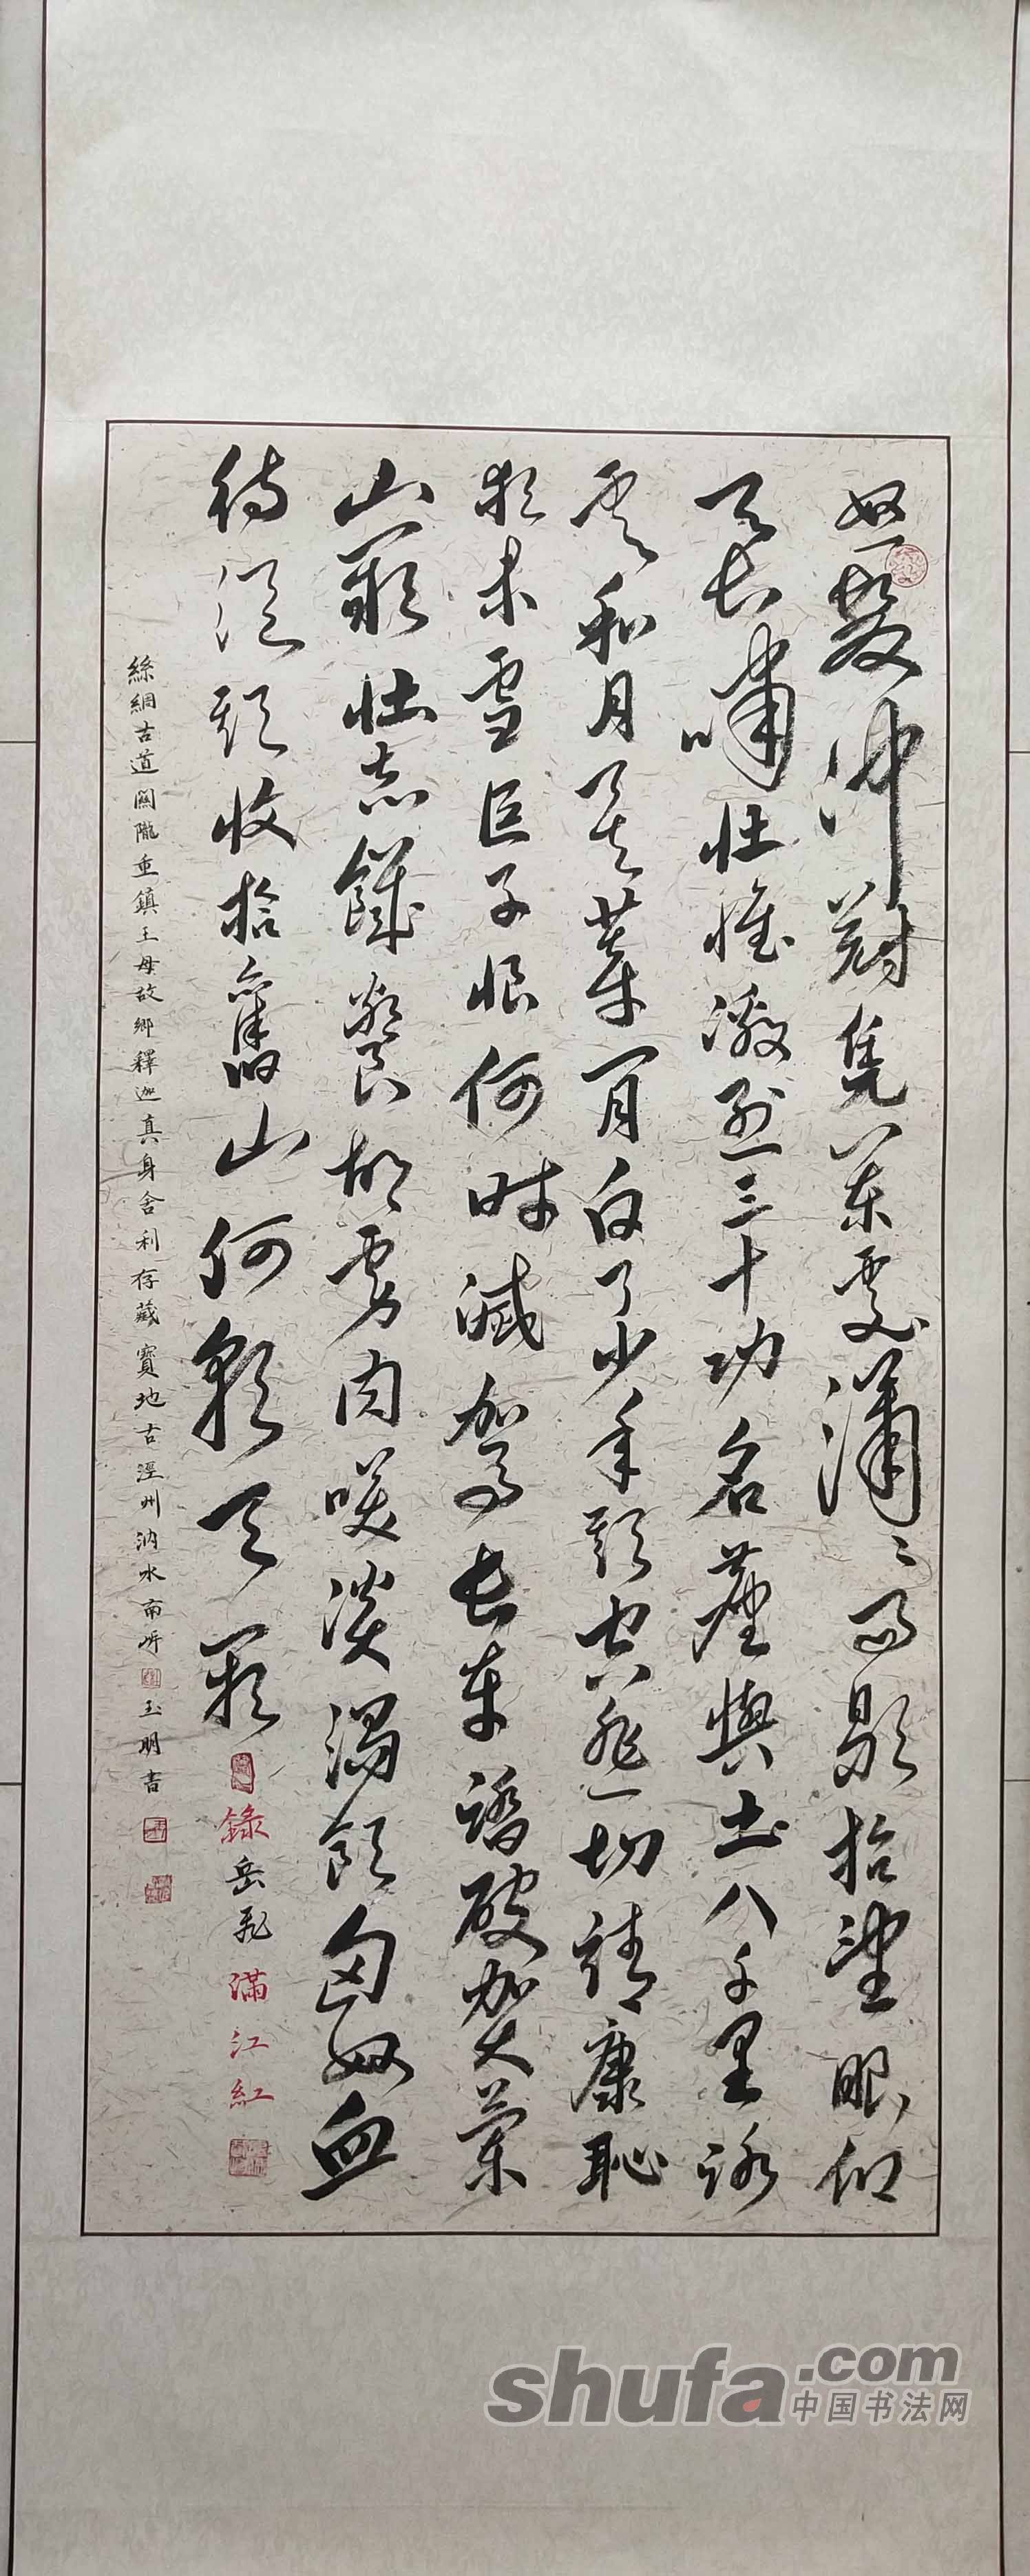 怒髮冲冠凭闌處瀟〻雨歇抬望眼仰
天長嘯壯懷激烈三十功名塵與土八千里路
雲和月莫等閒白了少年頭空悲切靖康恥
猶未雪臣子恨何時滅駕長車踏破賀蘭
山缺壯志饑餐胡虜肉笑談渴飲匈奴血
待從頭收拾舊山河朝天闕
錄岳飛滿江紅
絲綢古道關隴重鎮王母故鄉釋迦真身舍利存藏寶地古涇州汭水南岸玉明書
shufa.com
中国书法网